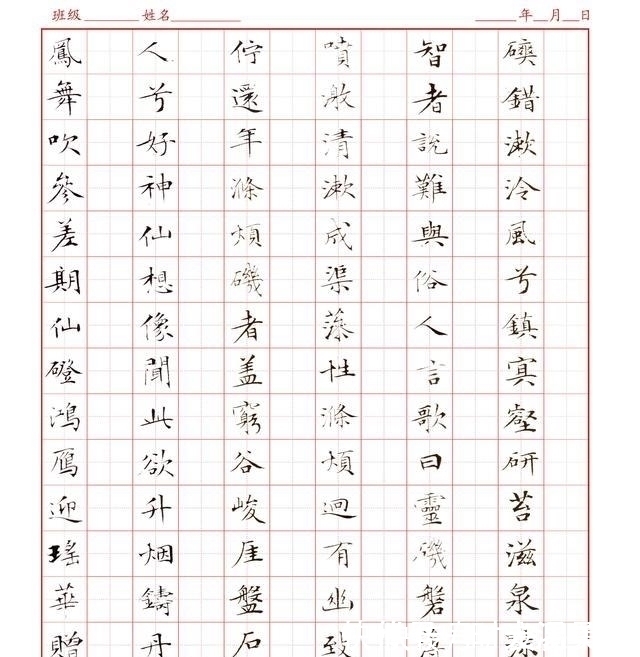 班级 姓名 年 月 日
錯漱泠風兮鎮冥壑研苔滋泉
智者說難與俗人言歌曰靈磯磐
噴激清漱成渠藻性滌煩迥有幽致
佇還年滌煩磯者盖窮谷峻厓盤石
人兮好神仙想像聞此欲升烟鑄丹
鳳舞吹參差期仙磴鴻鴈迎瑤華贈